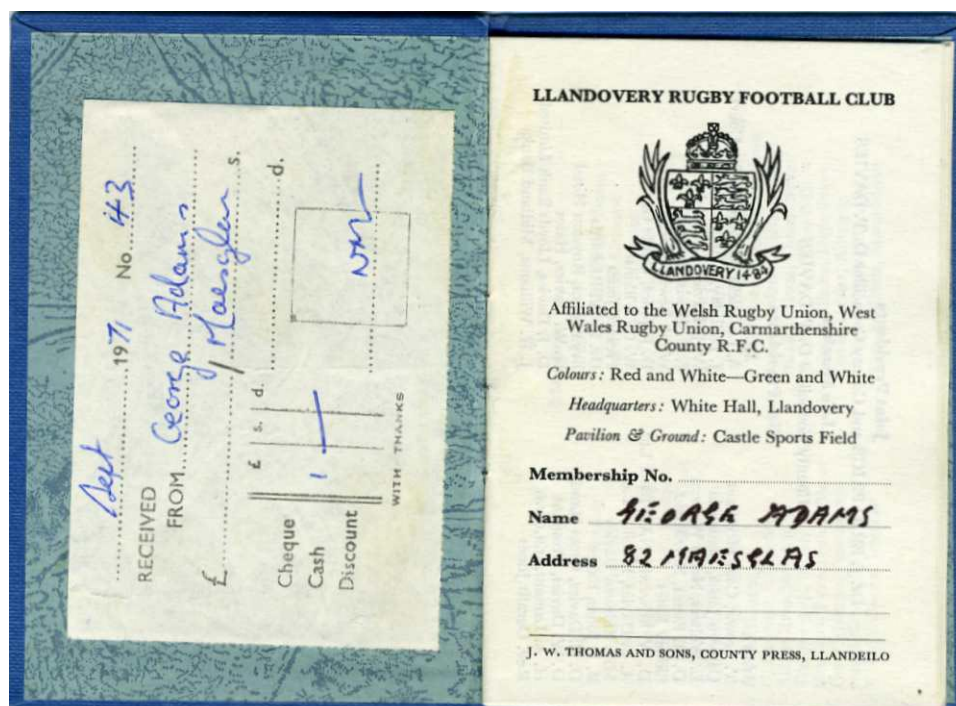 Sept 1971 No. 43
RECEIVED
FROM George Adams
£ / Maesglas s. d.
£ s. d.
Cheque
Cash 1 —
Discount
WITH THANKS
LLANDOVERY RUGBY FOOTBALL CLUB
LLANDOVERY 1484
Affiliated to the Welsh Rugby Union, West
Wales Rugby Union, Carmarthenshire
County R.F.C.
Colours: Red and White—Green and White
Headquarters: White Hall, Llandovery
Pavilion & Ground: Castle Sports Field
Membership No.
Name GEORGE ADAMS
Address 82 MAESGLAS
J. W. THOMAS AND SONS, COUNTY PRESS, LLANDEILO